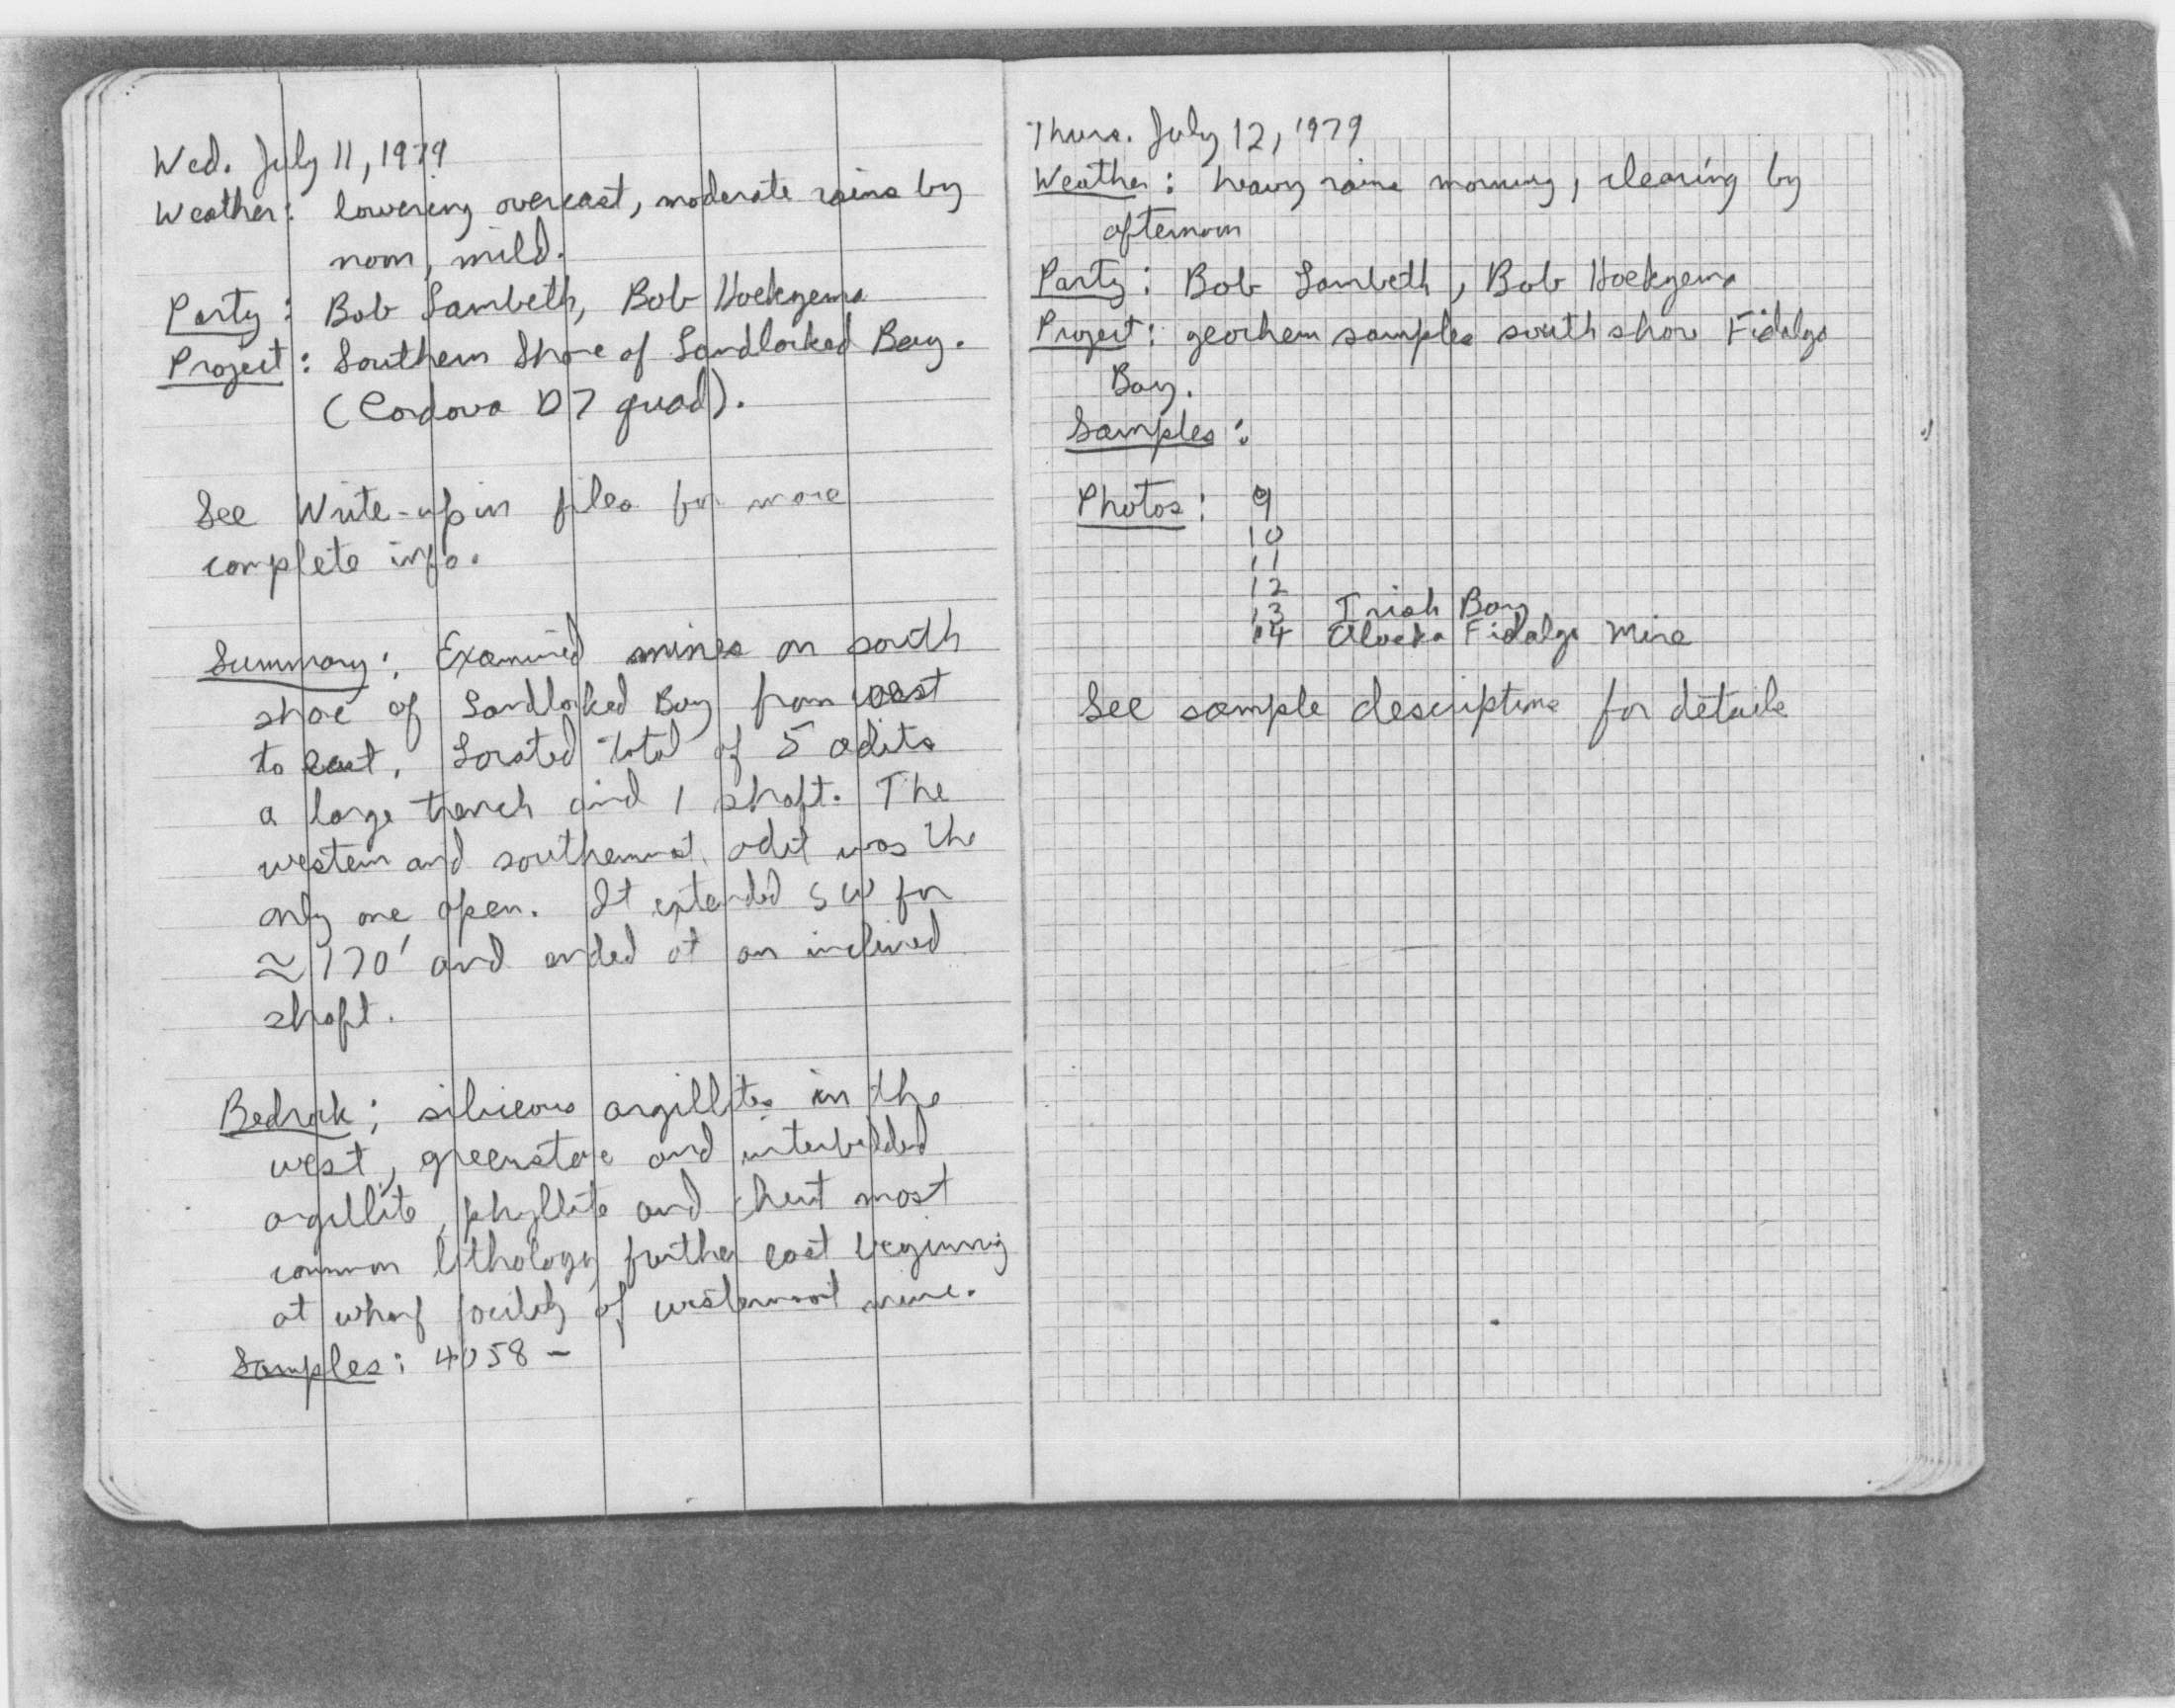 Wed. July 11, 1979
Weather: lowering overcast, moderate rains by
noon, mild.
Party: Bob Lambeth, Bob Hoekzema
Project: Southern Shore of Landlocked Bay.
(Cordova D7 quad).
See Write-up in files for more
complete info.
Summary: Examined mines on south
shore of Landlocked Bay from west
to east. Located total of 5 adits
a large trench and 1 shaft. The
western and southernmost adit was the
only one open. It extended SW for
≈170' and ended at an inclined
shaft.
Bedrock: siliceous argillites in the
west, greenstone and interbedded
argillite, phyllite and chert most
common lithology further east beginning
at wharf facility of westernmost mine.
Samples: 4058 -
Thurs. July 12, 1979
Weather: heavy rains morning, clearing by
afternoon
Party: Bob Lambeth, Bob Hoekzema
Project: geochem samples south shore Fidalgo
Bay.
Samples:
Photos: 9
10
11
12
13 Irish Bay
14 Alaska Fidalgo Mine
See sample descriptions for details